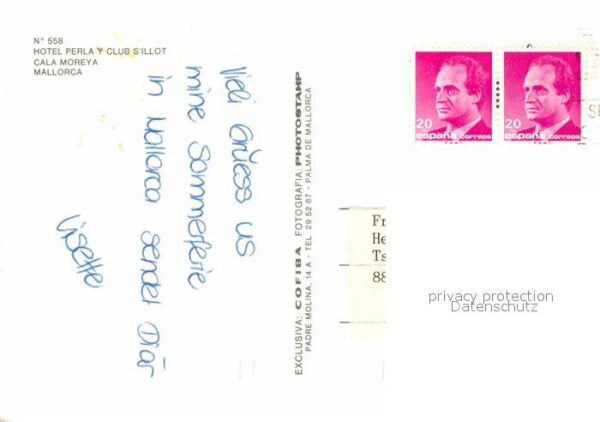 Nº 558
HOTEL PERLA Y CLUB S'ILLOT
CALA MOREYA
MALLORCA
Vili Grüess us
mine Sommerferie
in Mallorca sendet Diär
Lisette
EXCLUSIVA: COFIBA FOTOGRAFIA: PHOTOSTAMP
PADRE MOLINA, 14 A - TEL. 29 52 87 - PALMA DE MALLORCA
20
españa correos
F.N.M.T.
20
españa correos
F.N.M.T.
Fr
He
Ts
88
privacy protection
Datenschutz